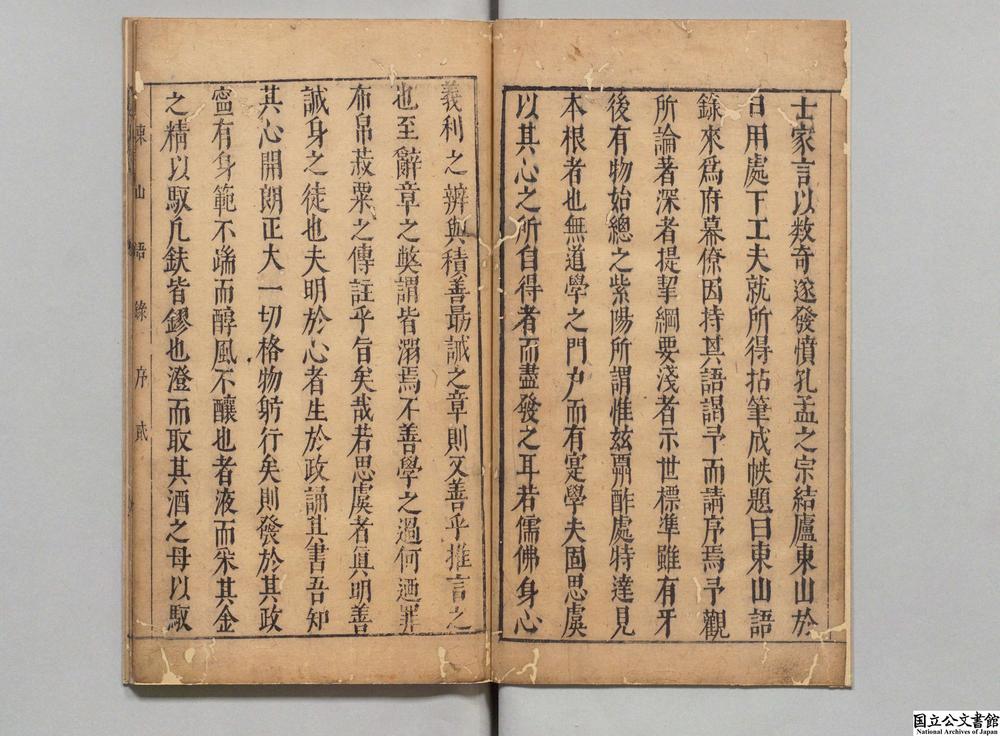 士家言以数奇遂發憤孔孟之宗結廬東山於
日用處下工夫就所得拈筆成帙題曰東山語
錄來為府幕僚因持其語謁予而請序焉予觀
所論著深者提挈綱要淺者示世標準雖有牙
後有物始總之紫陽所謂惟茲酬酢處特達見
本根者也無道學之門户而有寔學夫固思虞
以其心之所自得者而盡發之耳若儒佛身心
義利之辨與積善最誠之章則又善乎推言之
也至辭章之獘謂皆溺焉不善學之過何迺罪
布帛菽粟之傳註乎旨矣哉若思虞者眞明善
誠身之徒也夫明於心者生於政誦其書吾知
其心開朗正大一切格物躬行矣則發於其政
寧有身範不端而醇風不釀也者液而采其金
之精以馭凡鈇皆鏐也澄而取其酒之母以馭
東山語錄 序 貳
国立公文書館
National Archives of Japan